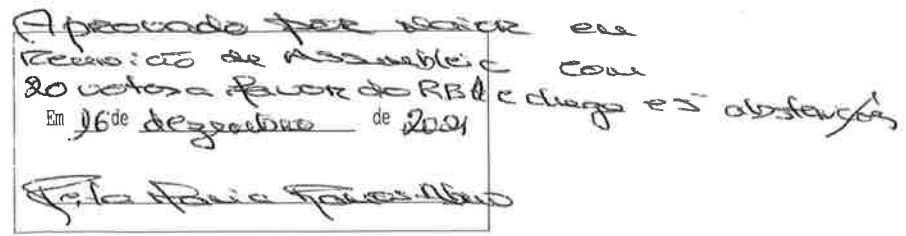 Aprovado por maior em
Reunião de Assembleia com
20 votos a favor do PS e chega e 5 abstenções
Em 16 de dezembro de 2021
Maria